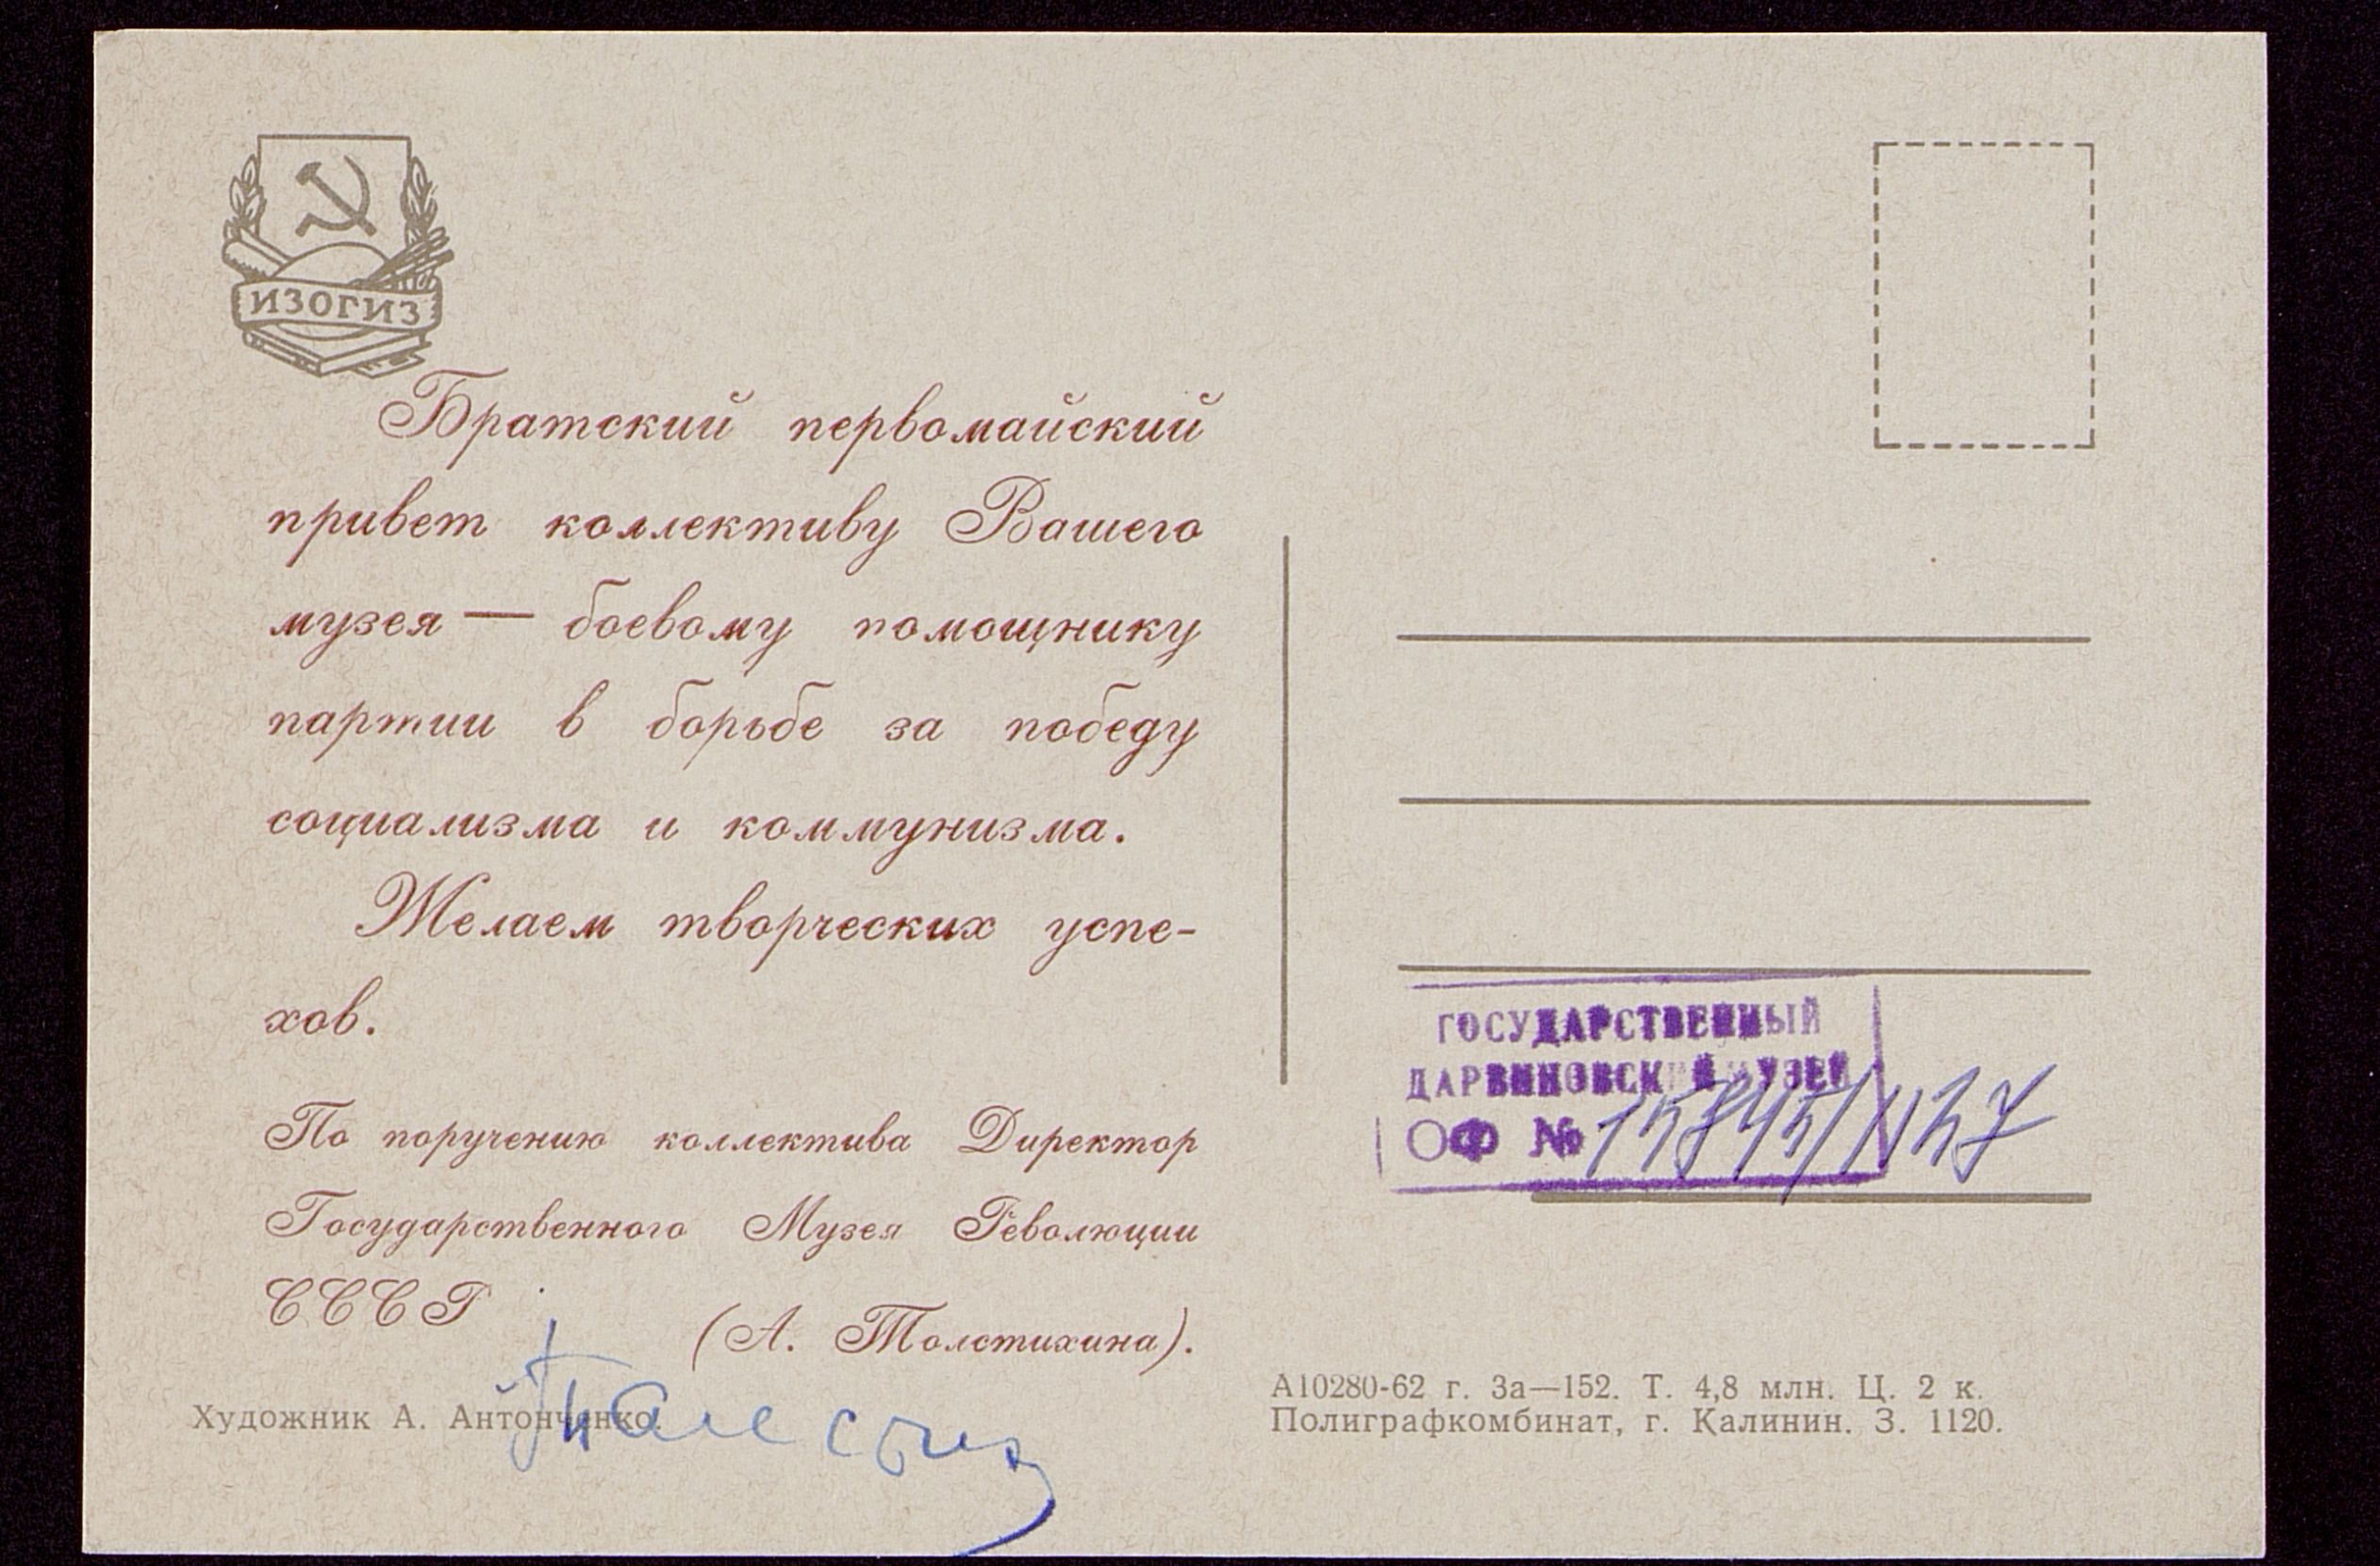 ИЗОГИЗ
Братский первомайский
привет коллективу Вашего
музея — боевому помощнику
партии в борьбе за победу
социализма и коммунизма.
Желаем творческих успе-
хов.
По поручению коллектива Директор
Государственного Музея Революции
СССР
(А. Толстихина).
Художник А. Антонченко.
ГОСУДАРСТВЕННЫЙ
ДАРВИНОВСКИЙ МУЗЕЙ
ОФ №
А10280-62 г. 3а—152. Т. 4,8 млн. Ц. 2 к.
Полиграфкомбинат, г. Калинин. З. 1120.